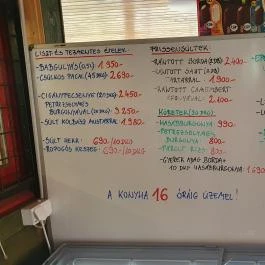 LISZT ÉS TEJMENTES ÉTELEK:
-BABGULYÁS (0,5l) 1350-
-CSÜLKÖS PACAL (45 DKG) 2690-
-CIGÁNYPECSENYE (20 DKG) 2450-
PETREZSELYMES
BURGONYÁVAL (20 DKG) 3250-
-SÜLT KOLBÁSZ MUSTÁRRAL 1980-
-SÜLT HEKK: 690-/10 DKG
-ROPOGÓS KESZEG: 690-/10 DKG
FRISSENSÜLTEK:
-RÁNTOTT BORDA (2 DB) 2400-
-RÁNTOTT SAJT (2 DB)
TARTÁRRAL 1900-
-RÁNTOTT CAMEMBERT
2100-
KÖRETEK: (20 DKG)
-HASÁBBURGONYA: 990-
-PETREZSELYMES
BURGONYA: 800-
-PÁROLT RIZS: 800-
-GYEREK ADAG BORDA+
10 DKG HASÁBBURGONYA:
A KONYHA 16 ÓRÁIG ÜZEMEL!